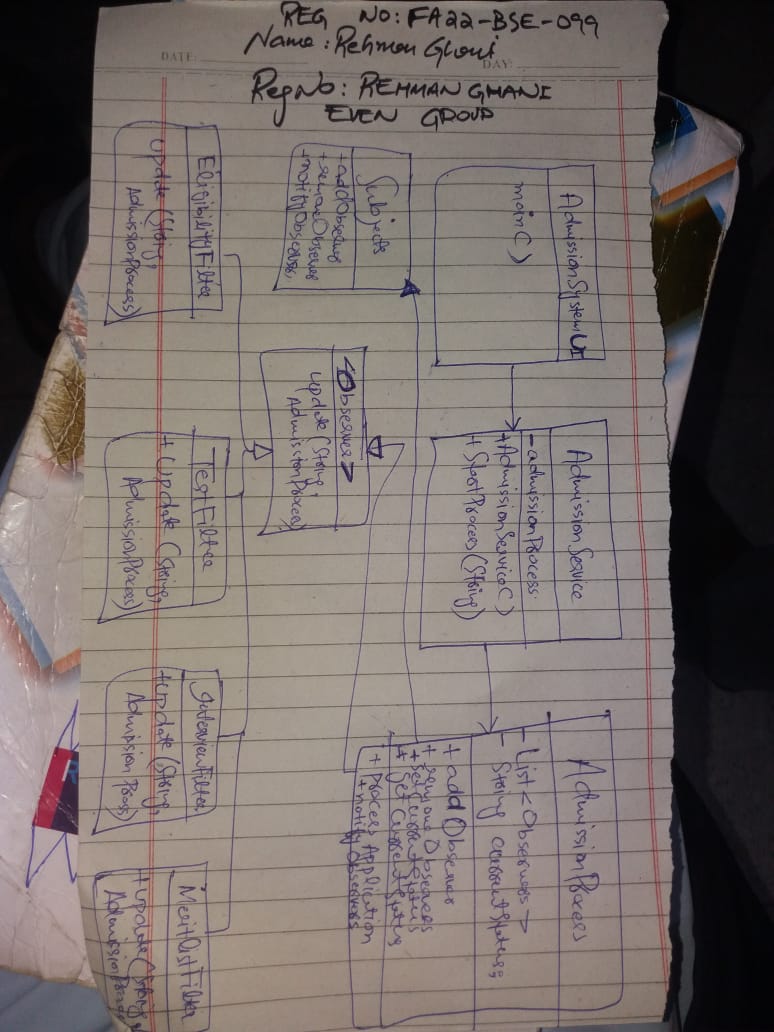 REG No: FA22-BSE-099
Name: Rehman Ghani
DATE:
DAY:
Reg No: REHMAN GHANI
EVEN GROUP
AdmissionSystemUI
main()
AdmissionService
- admissionProcess:
+ AdmissionService()
+ StartProcess(String)
AdmissionProcess
- List<Observers>
- String currentStatus;
+ addObserver
+ removeObservers
+ set currentstatus
+ get currentstatus
+ process Application
+ notifyobservers
Subjects
+addObserver
+removeObserver
+notifyObserver,
<Observer>
update(String,
AdmissionProcess)
EligibilityFilter
update(String,
AdmissionProcess)
TestFilter
+ Update(String,
AdmissionProcess)
InterviewFilter
+update(String,
Admission Process)
MeritListFilter
+update(String,
AdmissionProcess